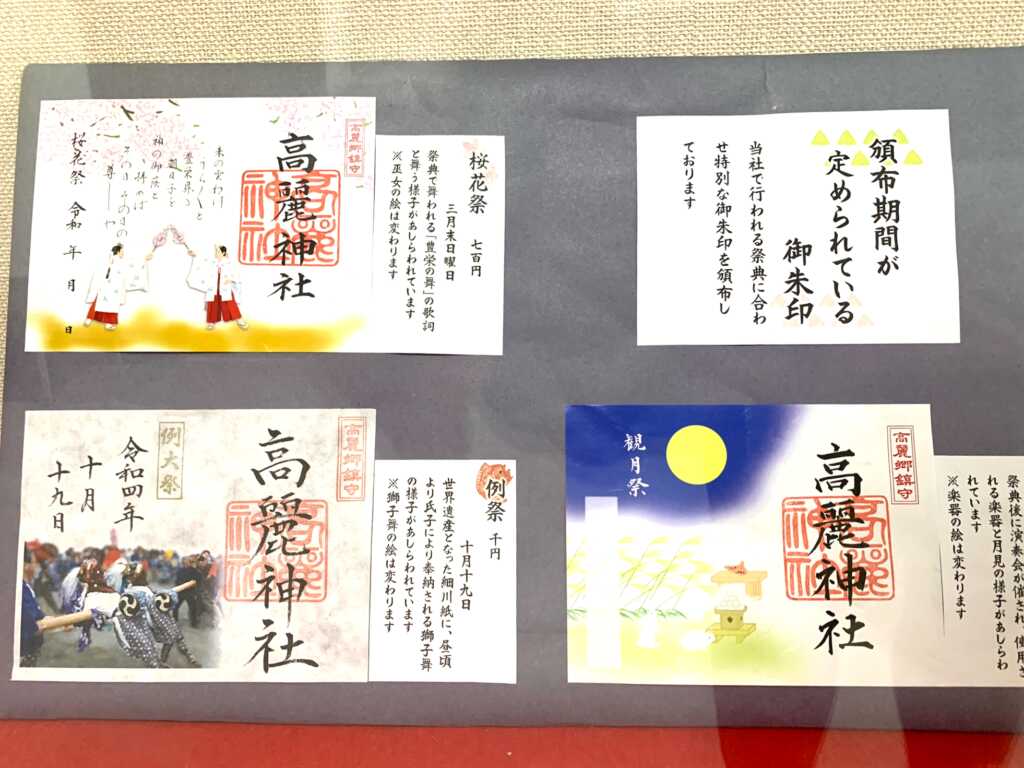 頒布期間が
定められている
御朱印
当社で行われる祭典に合わ
せ特別な御朱印を頒布し
ております
高麗郷鎮守
高麗神社
桜花祭 令和 年 月 日
桜花祭 七百円
三月末日曜日
祭典で舞われる「豊栄の舞」の歌詞
と舞う様子があしらわれています
※巫女の絵は変わります
高麗郷鎮守
高麗神社
例大祭
令和四年
十月
十九日
例祭 千円
十月十九日
世界遺産となった細川紙に、昼頃
より氏子により奉納される獅子舞
の様子があしらわれています
※獅子舞の絵は変わります
高麗郷鎮守
高麗神社
観月祭
祭典後に演奏会が催され、使用さ
れる楽器と月見の様子があしらわ
れています
※楽器の絵は変わります